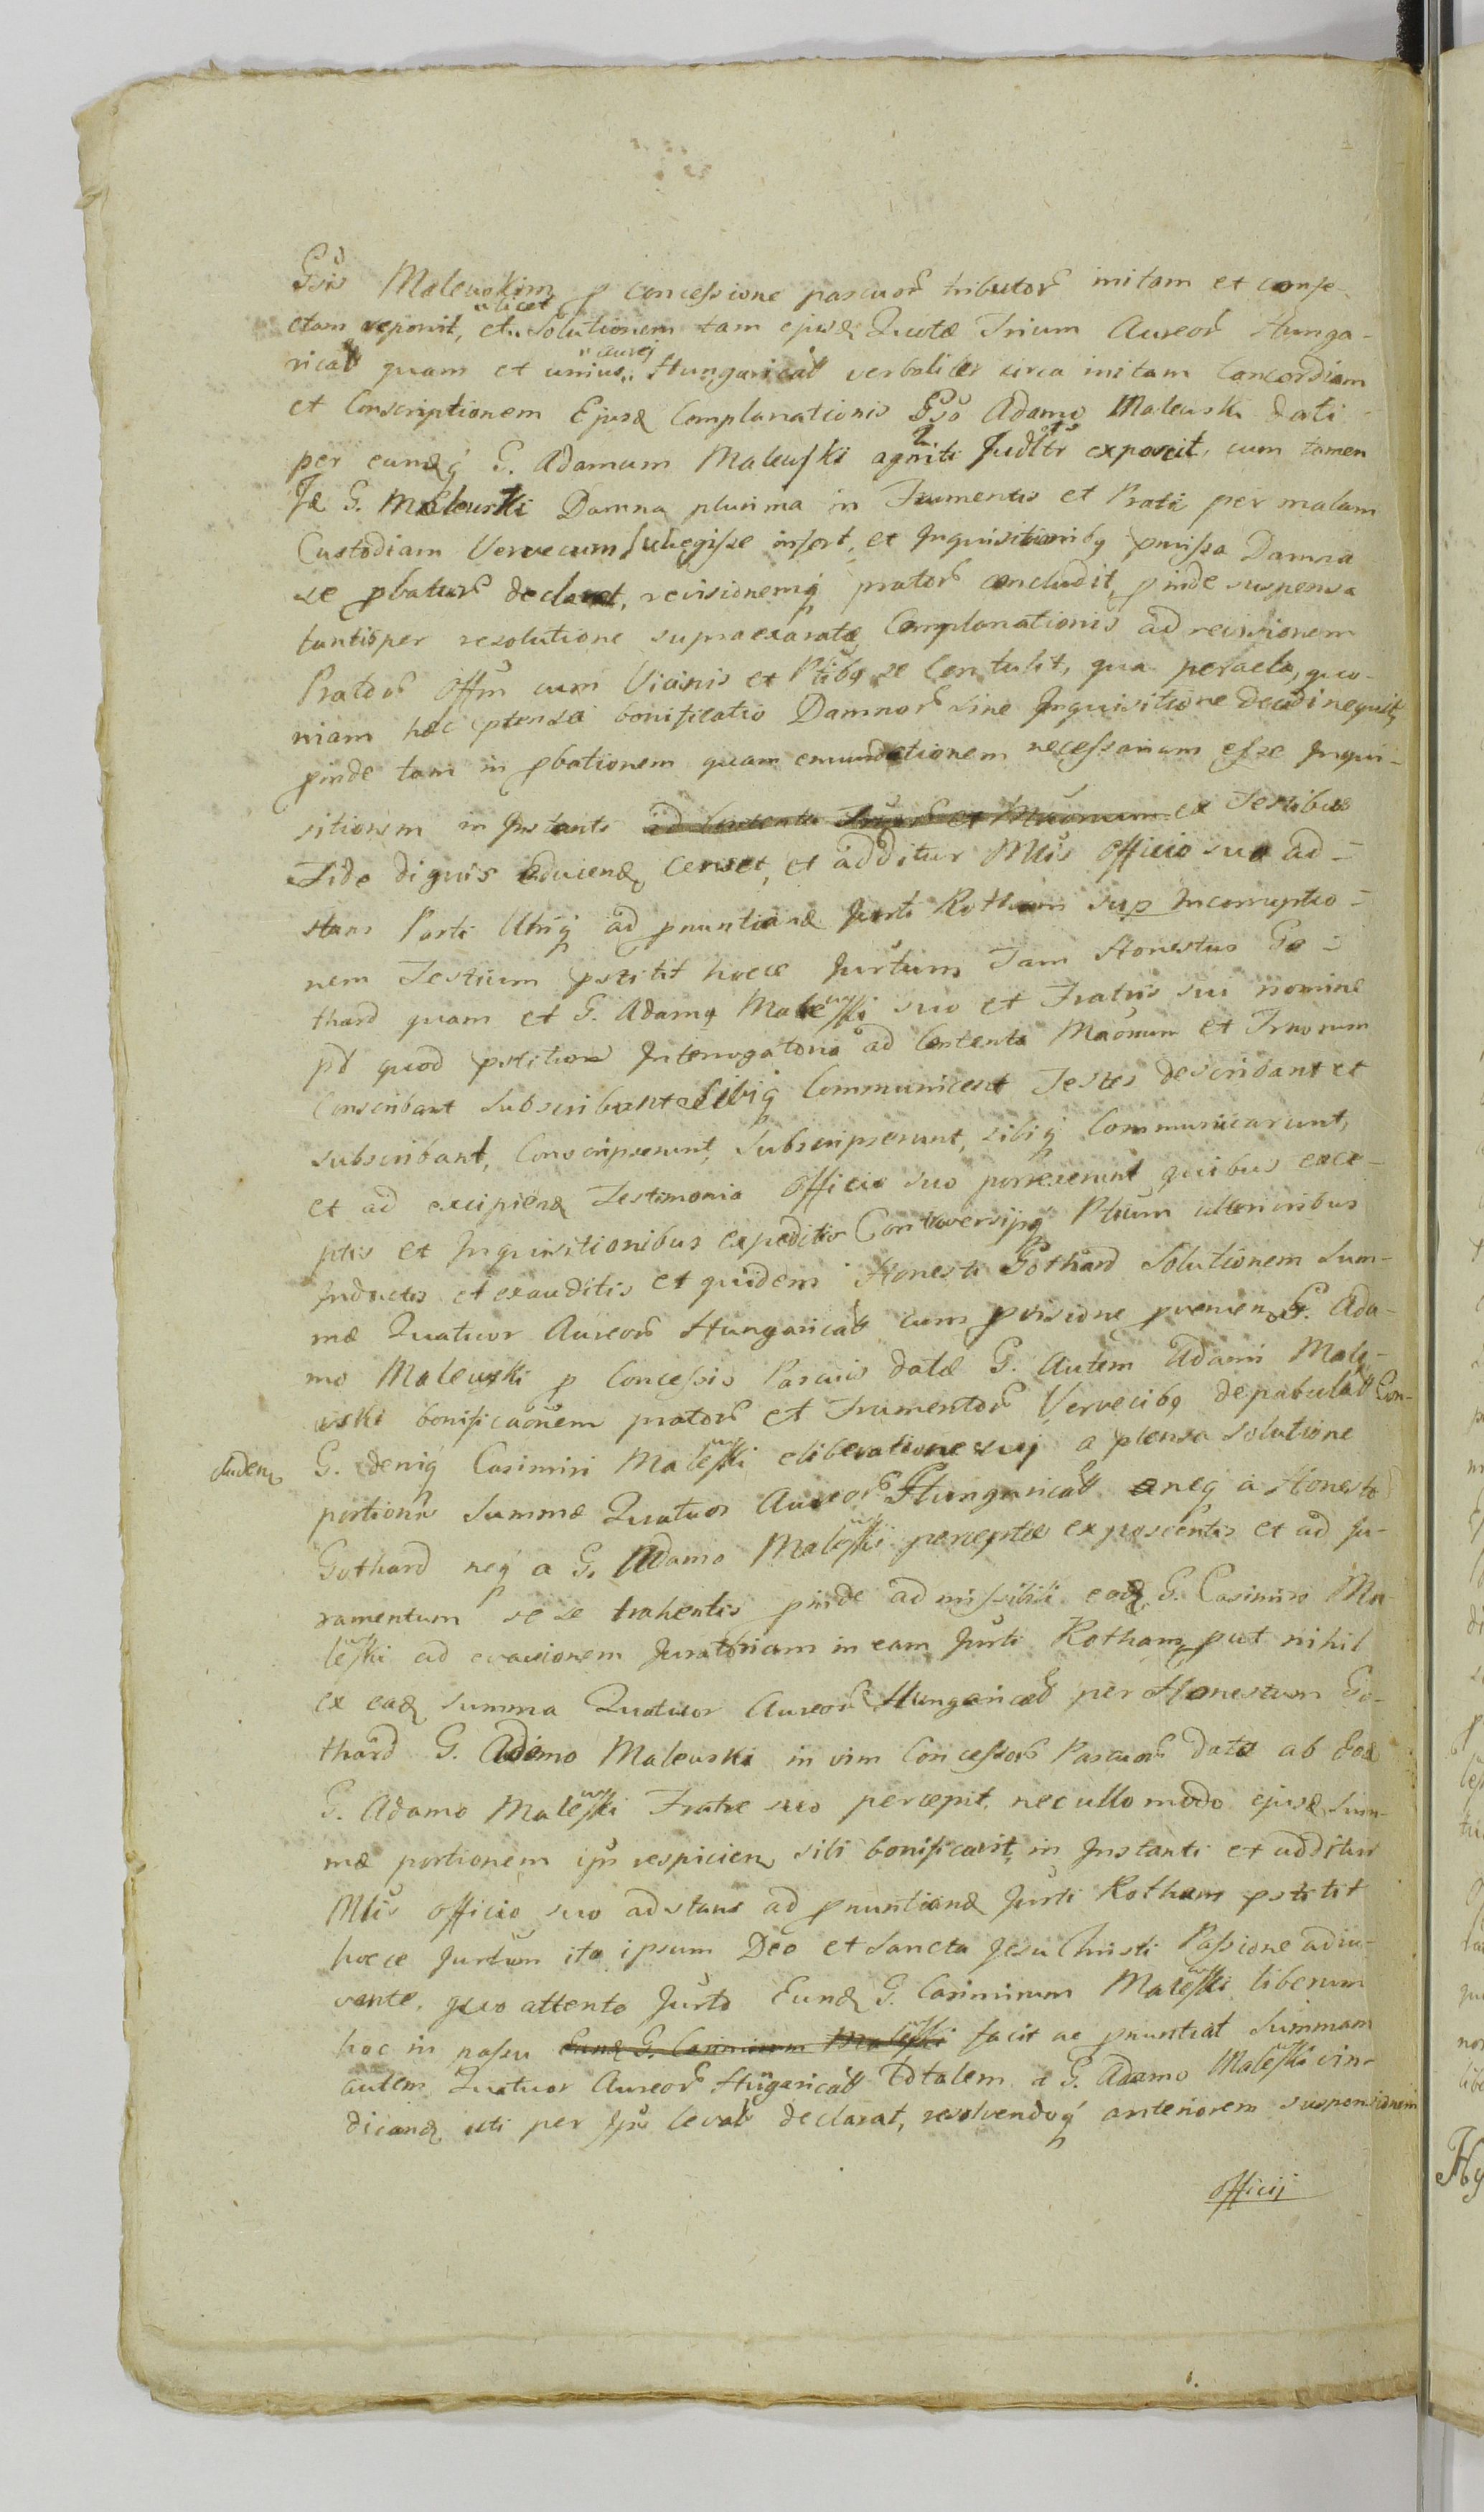 Gsis Malewskim p concessione pascuor tributor initam et confe-
ctam reponit, licet et solutionem tam ejusd Quotæ Trium Aureor Hunga-
rical quam et unius aurej Hungarical verbaliter circa initam Concordiam
et Conscriptionem Ejusd Complanationis Gso Adamo Malewski dati
per eundq G. Adamum Malewski agniti exposcit, cum tamen
Id G. Malewski Damna plurima in Frumentis et Prati per malam
Custodiam Vervecum subegisse infert, et Inquisitionibq pmissa Damna
se pbatur declaret, revisionemq prator concludit, pinde suspensa
tantisper resolutione supraexaratæ Complanationis ad revisionem
Prator Offm cum Vicinis et Ptibq se Contulit, qua peracta, quo-
niam hæc ptensa bonificatio Damnor sine Inquisitione decidi nequit
pinde tam in pbationem quam emundationem necessariam esse Inqui-
sitionem in Instanti ex Testibus
Fide dignis educiend censet, et additur Mlis officio suo ad-
stans Parti Utriq ad pnuntiand Jurti Rotham sup Incorruptio-
nem Testium pstitit hocce Jurtum Tam Honestus Go-
thard quam et G. Adamq Malewski suo et Fratris sui nomine
pt quod pstitum Interrogatoria ad Contenta et
Conscribant Subscribant Sibiq Communicent Testes describant et
subscribant, Conscripserunt, Subscripserunt, sibiq Communicarunt,
et ad excipiend Testimonia Officio suo porrexerunt quibus exce-
ptis et Inquisitionibus expeditis Controversijsq Ptium ulterioribus
Inductis et exauditis et quidem Honesti Gothard Solutionem Sum-
mæ Quatuor Aureor Hungarical cum pvisione pvenien G. Ada-
mo Malewski p Concessis Pascuis datæ G. Autem Adami Male-
wski bonificaonem prator et Frumentor Vervecibq depabulat Con-
cluden G. deniq Casimiri Malewski eliberatione suj a ptensa solutione
portionis Summæ Quatuor Aureor Hungarical neq a Honesto
Gothard neq a G. Adamo Malewski perceptæ exposcentis et ad Ju-
ramentum sese trahentis pinde admissibili eod G. Casimiro Ma-
lewski ad evasionem Juratoriam in eam Jurti Rotham put nihil
ex ead summa Quatuor Aureor Hungarical per Honestum Go-
thard G. Adamo Malewski in vim Concessor Pascuor data ab Eod
G. Adamo Malewski Fratre suo percepit, nec ullo modo ejusd Sum-
mæ portionem ipm respicien sibi bonificavit, in Instanti et additur
Mlis officio suo adstans ad pnuntiand Jurti Rotham pstitit
hocce Jurtum ita ipsum Deo et Sancta Jesu Christi Passione adiu-
vante, quo attento Jurto Eund G. Casimirum Malewski liberum
hoc in passu Eund G. Casimirum Malewski facit ac pnuntiat Summam
autem Quatuor Aureor Hugarical Totalem a G. Adamo Malewski vin-
dicand uti per Ips levat declarat, resolvendoq anteriorem suspensionem
Officij